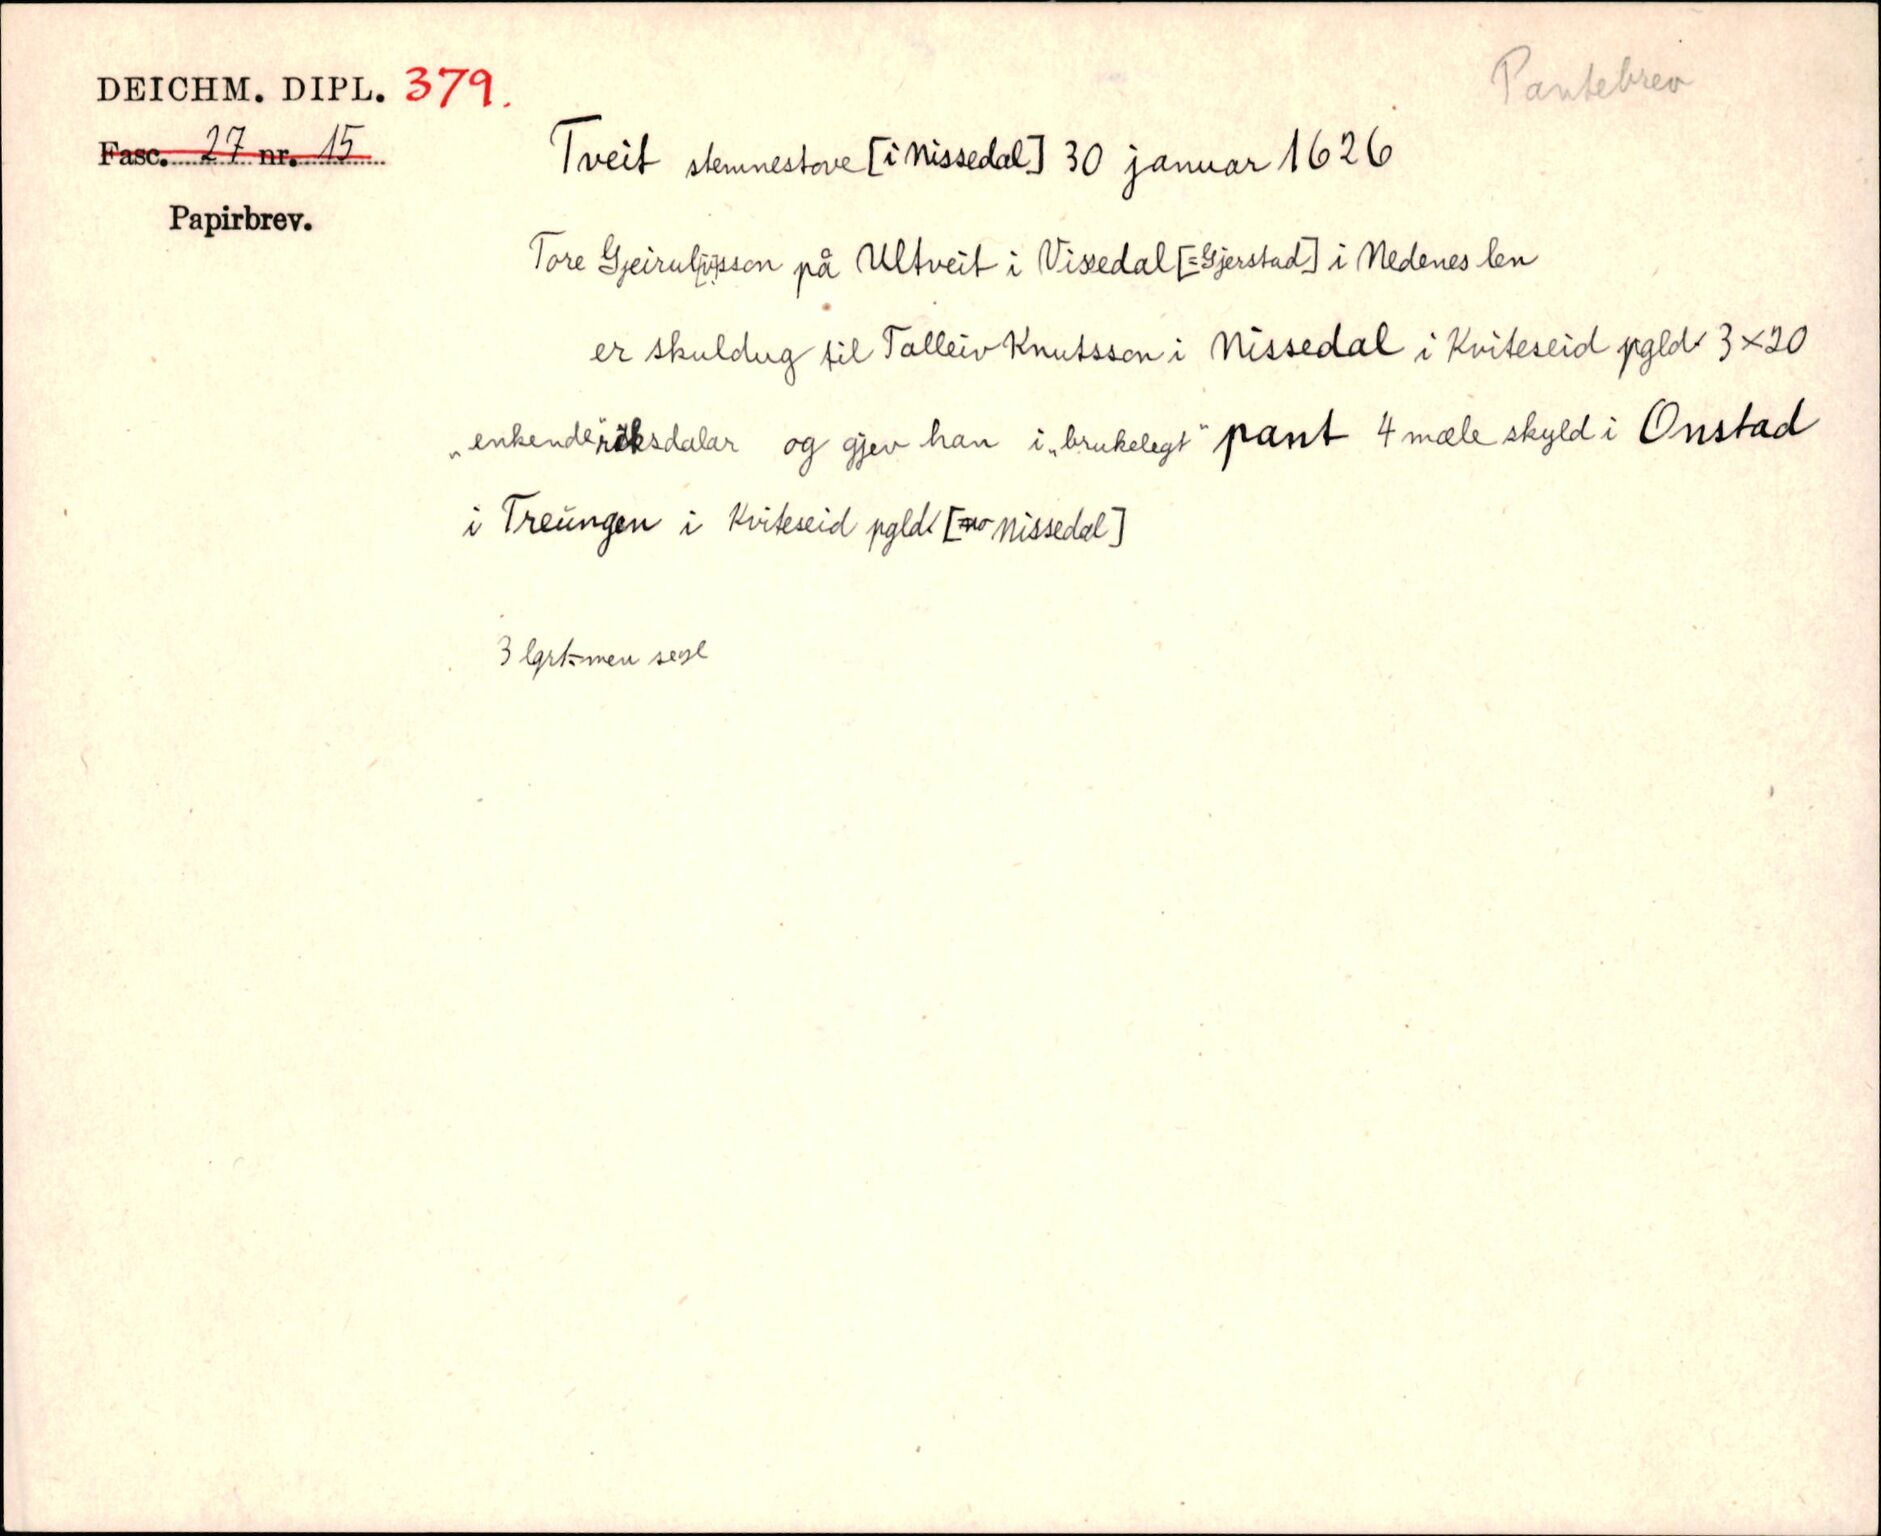 DEICHM. DIPL. 379.
Pantebrev
Fasc. 27 nr. 15
Papirbrev.
Tveit stemnestove [i Nissedal] 30 januar 1626
Tore på Ultveit i Vissedal [=Gjerstad] i Nedenes len
er skuldug til Talleiv Knutsson i Nissedal i Kviteseid pgld. 3×20
„enkende" riksdalar og gjev han i „brukelegt" pant 4 mæle skyld i Onstad
i Treungen i Kviteseid pgld. [no Nissedal]
3 lgrt.men segl